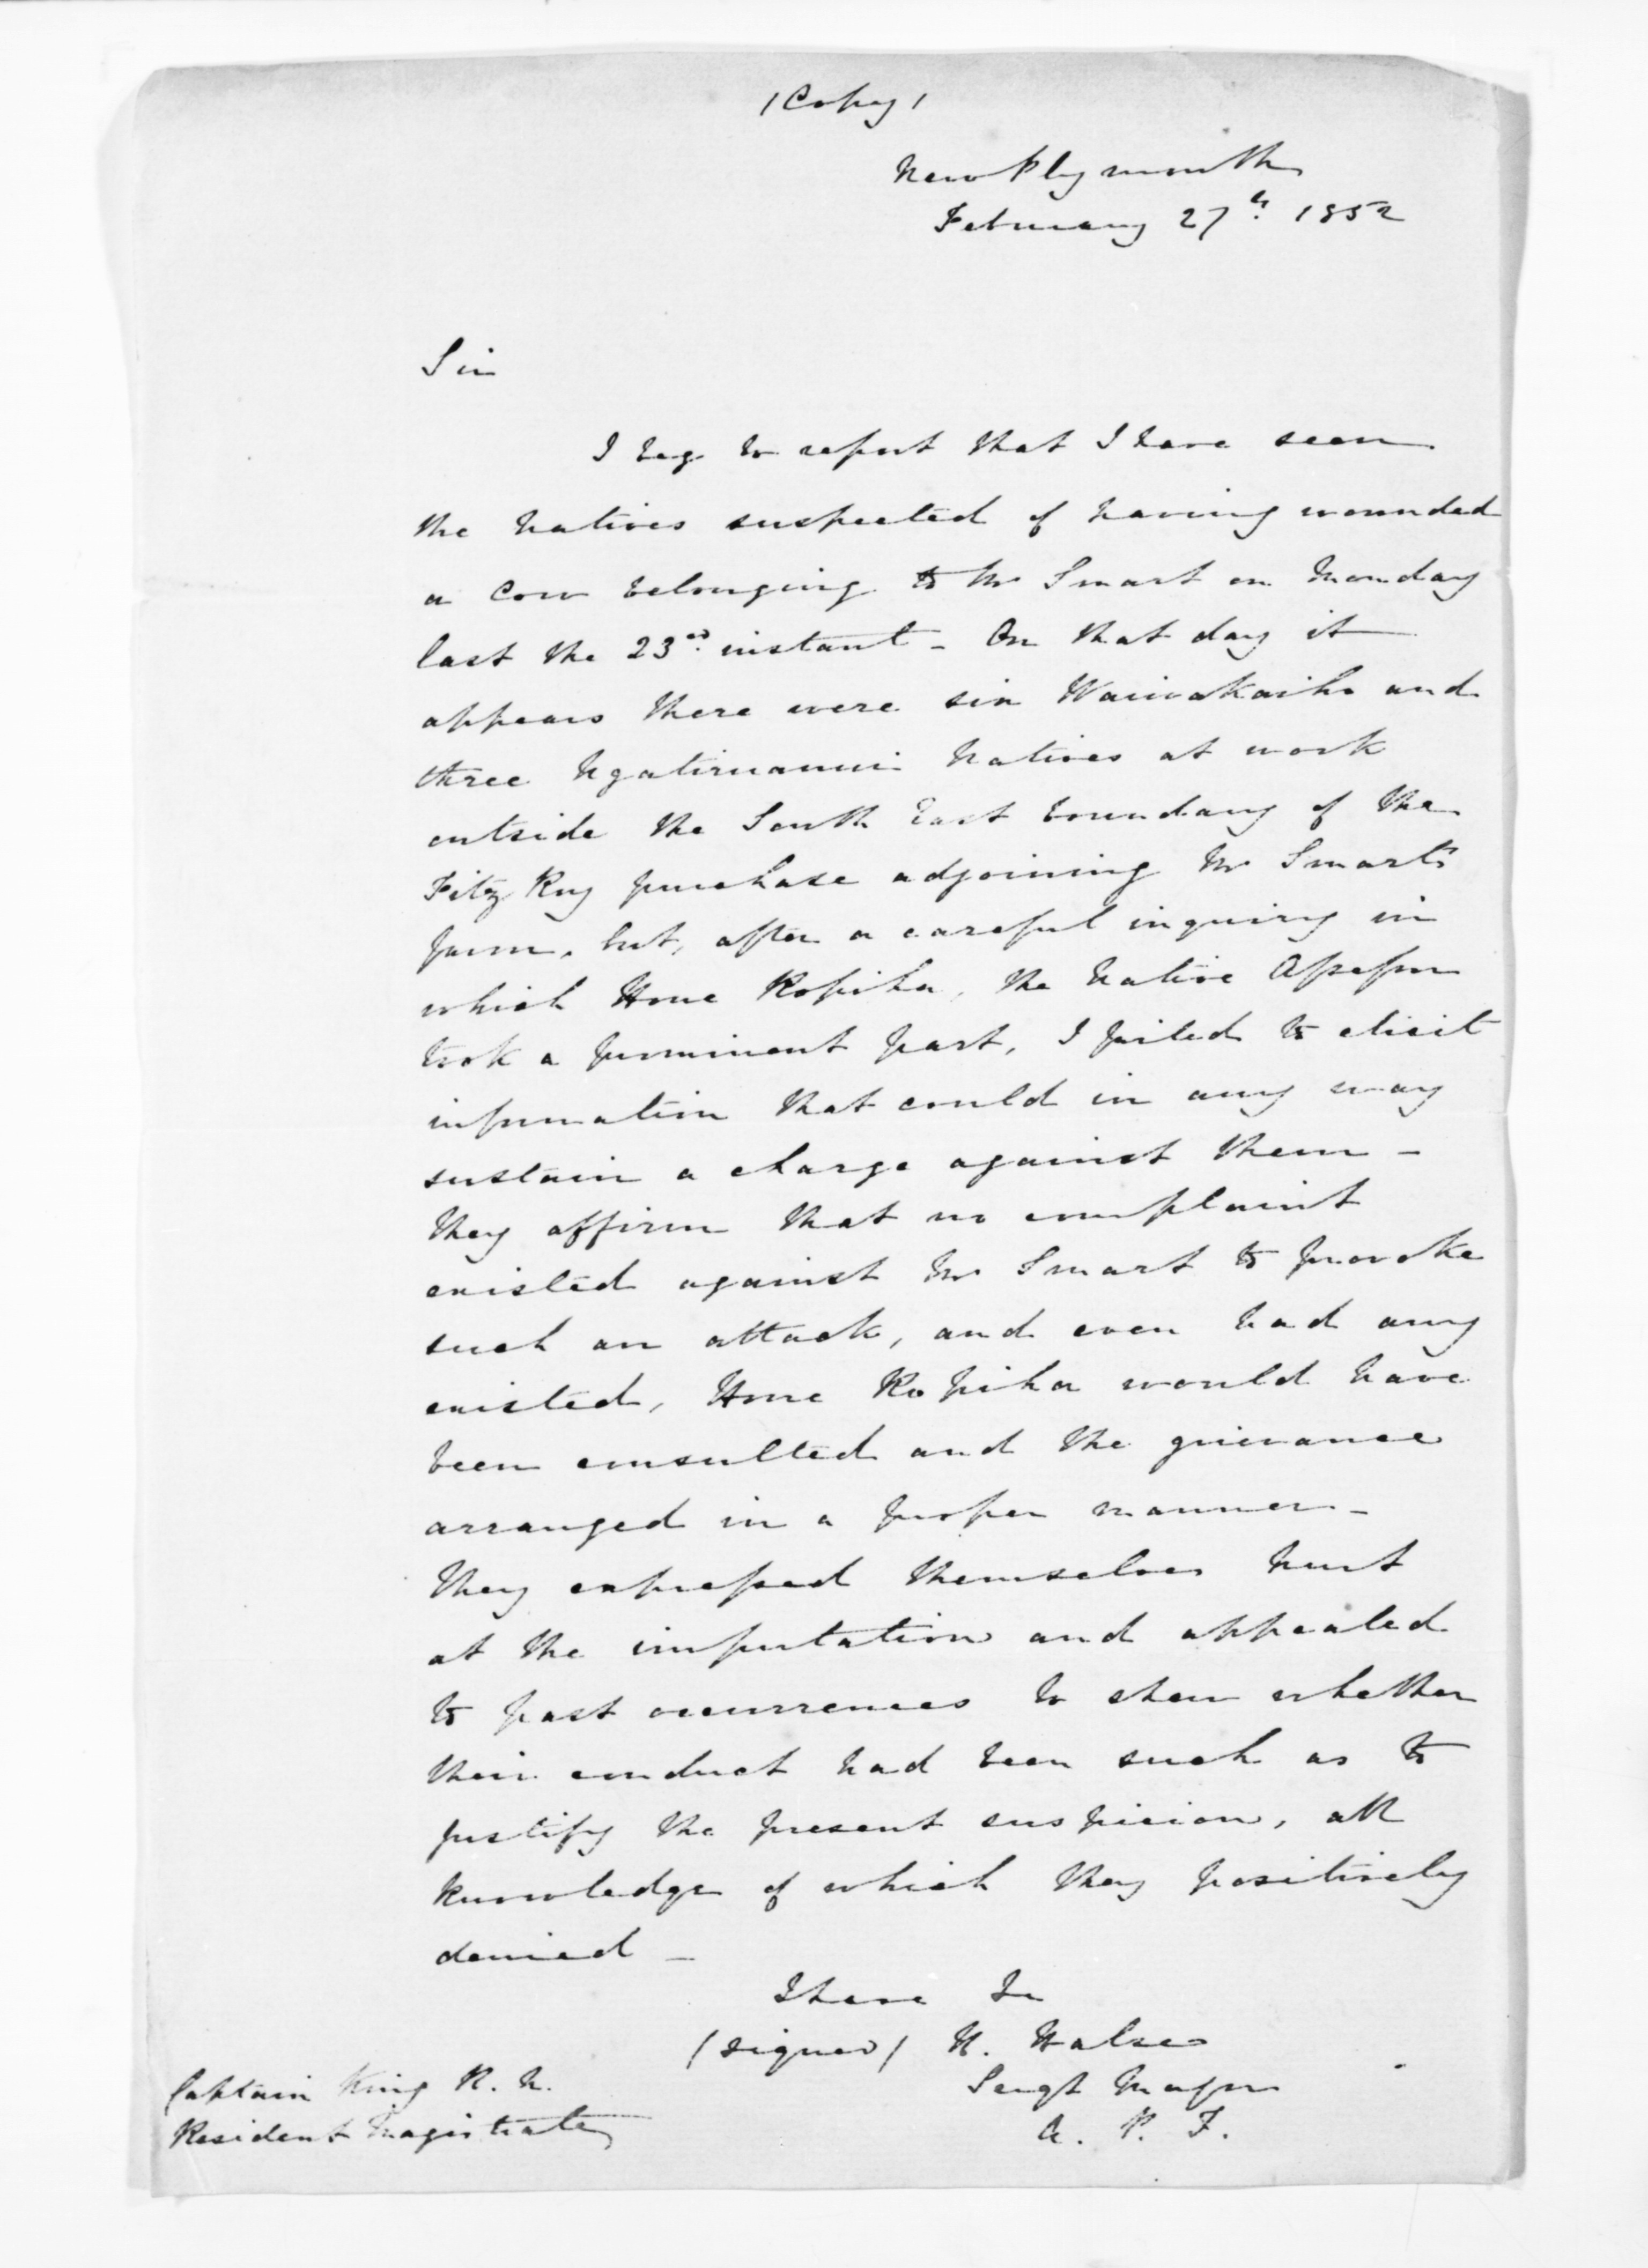 (Copy)
New Plymouth
February 27th. 1852
Sir
I beg to report that I have seen
the Natives suspected of having wounded
a Cow belonging to Mr Smart on Monday
last the 23rd. instant - On that day it
appears there were six Waiwakaiho and
three Ngatiruanui Natives at work
outside the South East boundary of the
Fitz Roy purchase adjoining Mr Smart's
farm, but, after a careful inquiry in
which Hone Ropiha, the Native Assessor
took a prominent part, I failed to elicit
information that could in any way
sustain a charge against them -
They affirm that no complaint
existed against Mr Smart to provoke
such an attack, and even had any
existed, Hone Ropiha would have
been consulted and the grievance
arranged in a proper manner -
They expressed themselves hurt
at the imputation and appealed
to past occurrences to shew whether
their conduct had been such as to
justify the present suspicion, all
knowledge of which they positively
denied -
I have &c
(signed) H. Halse
Sergt Major
A. P. F.
Captain King R. N.
Resident Magistrate